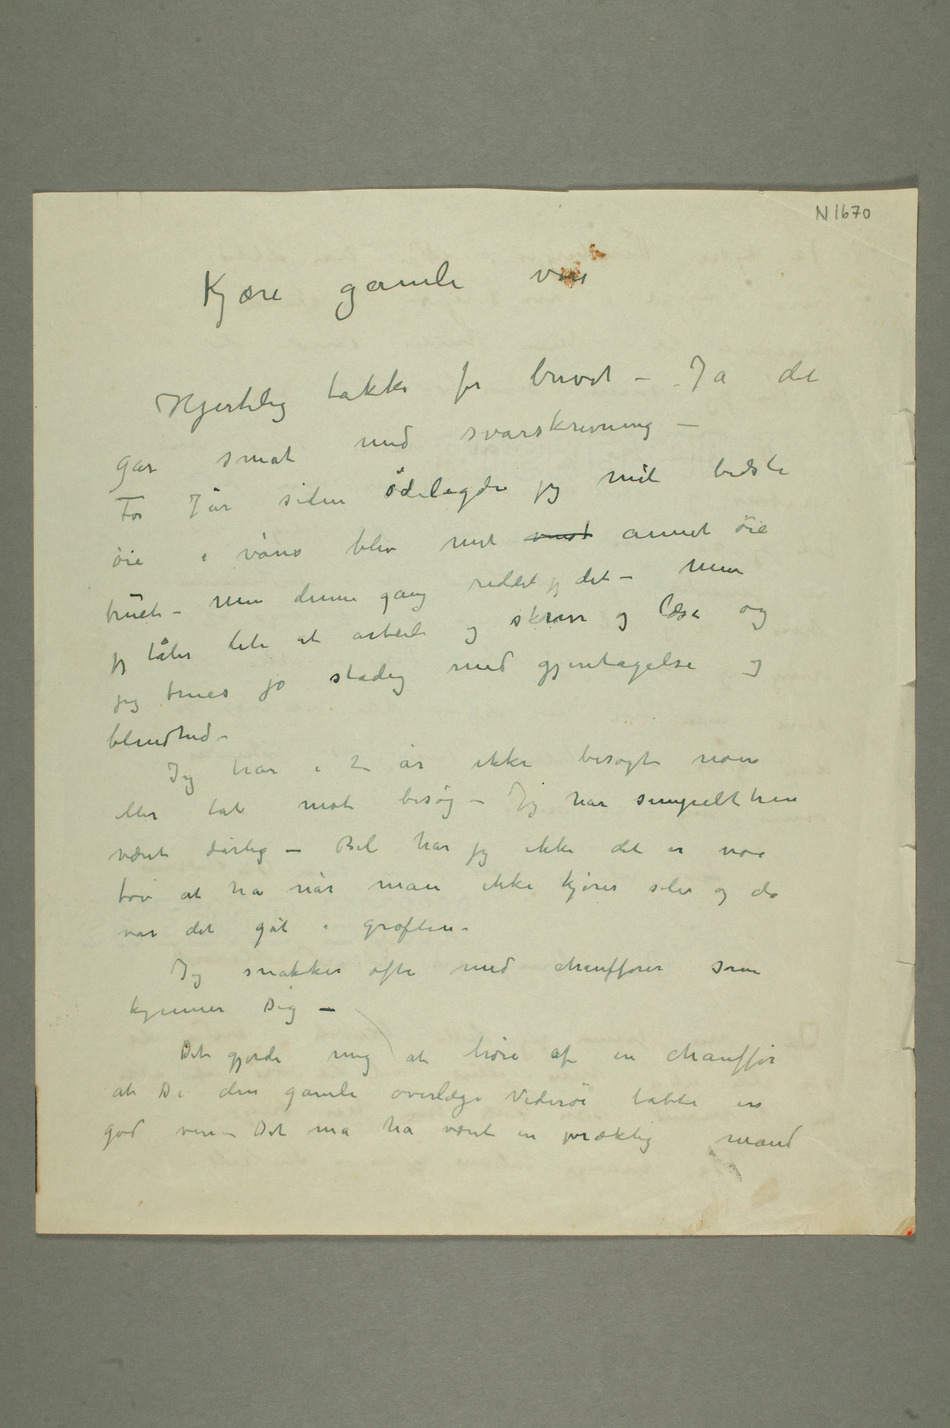 N 1670
Kjære gamle ven
Hjertelig takk for brevet – Ja det
går smat med svarskrivning –
For 7 år siden ödelagde jeg mit bedste
öie i våres blev mit venst annet öie
truet – Men denne gang reddet jeg det – Men
jeg tåler lite at arbeide og skrive og læse og
jeg trues jo stadig med gjentagelse og
blindhed –
Jeg har i 2 år ikke besøgt noen
eller tat mot besøg – Jeg har simpelthen
været dårlig – Bil har jeg ikke det er noe
tøv at ha når man ikke kjører selv og da
var det gåt i grøften –
Jeg snakker ofte med chauffører som
kjenner Dig –
Det gjorde mig at høre af en chauffør
at De den gamle overlæge Viderøe tabte en
god ven – Det må ha været en præktig mand